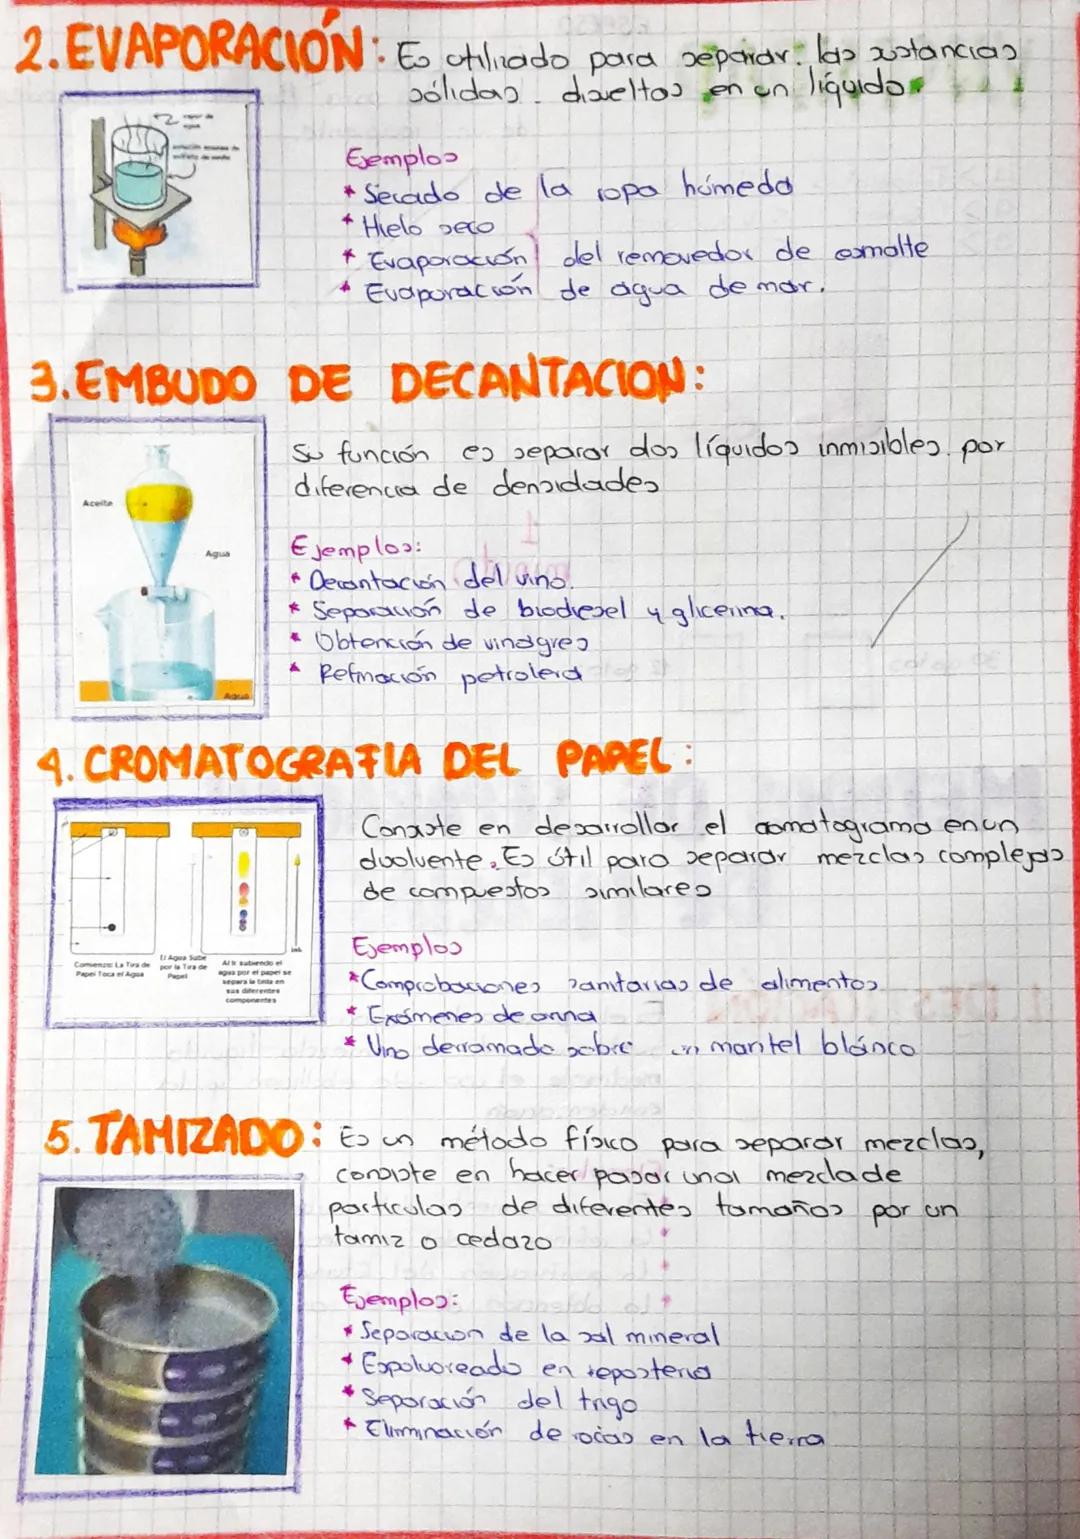 2. EVAPORACIÓN: Es utilizado para separar. las sustancias
sólidas. disueltas en un líquido.
vapor de
agua
Ejemplos
* Secado de la ropa húmeda
* Hielo seco
* Evaporación del removedor de esmalte
* Evaporación de agua de mar.
3. EMBUDO DE DECANTACION:
Su función es separar dos líquidos inmisibles. por
diferencia de densidades
Aceite
Agua
Agua
Ejemplos:
* Decantación del vino.
* Separación de biodiesel y glicerina.
* Obtención de vinagres
* Refinación petrolera
4. CROMATOGRAFIA DEL PAPEL:
Consiste en desarrollar el comatograma en un
disolvente. Es útil para separar mezclas complejas
de compuestos similares
Comienzo: La Tira de
Papel Toca el Agua
El Agua Sube
por la Tira de
Papel
Al ir subiendo el
agua por el papel se
separa la tinta en
sus diferentes
componentes
Ejemplos
* Comprobaciones sanitarias de alimentos
* Exámenes de orina
* Vino derramado sobre un mantel blánco
5. TAMIZADO: Es un método físico para separar mezclas,
consiste en hacer pasar una mezcla de
particulas de diferentes tamaños por un
tamiz o cedazo
Ejemplos:
* Separacion de la sal mineral
* Espolvoreado en reposteria
* Separación del trigo
* Eliminación de rocas en la tierra